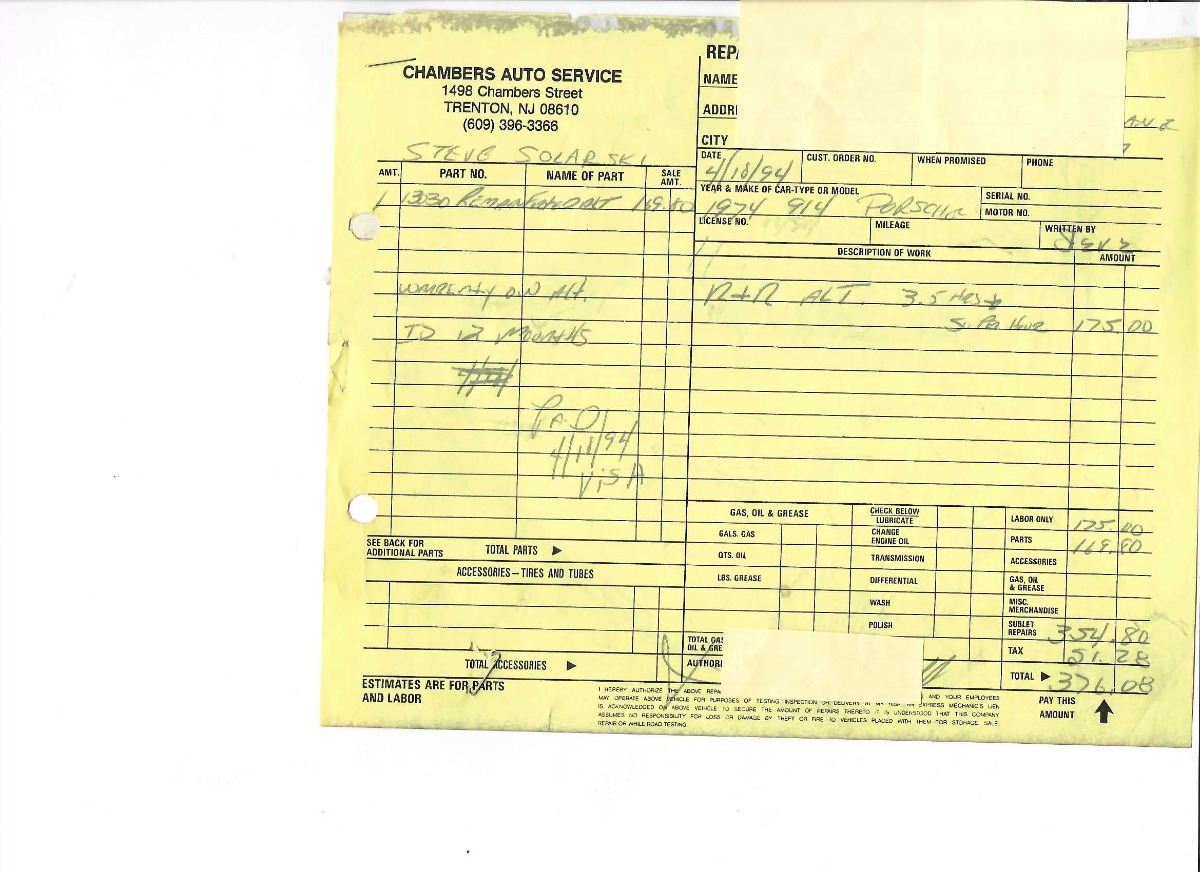 REPA
CHAMBERS AUTO SERVICE
1498 Chambers Street
TRENTON, NJ 08610
(609) 396-3366
STEVE SOLARSKI
NAME
ADDR
CITY
DATE CUST. ORDER NO. WHEN PROMISED PHONE
4/18/94
AMT. PART NO. NAME OF PART SALE AMT.
1 13030 169.80
YEAR & MAKE OF CAR-TYPE OR MODEL SERIAL NO.
1974 914 MOTOR NO.
LICENSE NO. MILEAGE WRITTEN BY
DESCRIPTION OF WORK AMOUNT
ON Alt.
TO 12
R+R ALT. 3.5 HRS
Per Hour 175.00
PAID
4/18/94
VISA
SEE BACK FOR
ADDITIONAL PARTS TOTAL PARTS
ACCESSORIES—TIRES AND TUBES
TOTAL ACCESSORIES
ESTIMATES ARE FOR PARTS
AND LABOR
GAS, OIL & GREASE
GALS. GAS
QTS. OIL
LBS. GREASE
TOTAL GAS
OIL & GRE
AUTHORI
CHECK BELOW
LUBRICATE
CHANGE
ENGINE OIL
TRANSMISSION
DIFFERENTIAL
WASH
POLISH
LABOR ONLY 175.00
PARTS 169.80
ACCESSORIES
GAS, OIL
& GREASE
MISC.
MERCHANDISE
SUBLET
REPAIRS 354.80
TAX 51.28
TOTAL 376.08
PAY THIS
AMOUNT
I HEREBY AUTHORIZE THE ABOVE REPA AND YOUR EMPLOYEES
MAY OPERATE ABOVE VEHICLE FOR PURPOSES OF TESTING INSPECTION OR DELIVERY AT EXPRESS MECHANIC'S LIEN
IS ACKNOWLEDGED ON ABOVE VEHICLE TO SECURE THE AMOUNT OF REPAIRS THERETO. IT IS UNDERSTOOD THAT THIS COMPANY
ASSUMES NO RESPONSIBILITY FOR LOSS OR DAMAGE BY THEFT OR FIRE TO VEHICLES PLACED WITH THEM FOR STORAGE, SALE,
REPAIR OR WHILE ROAD TESTING.